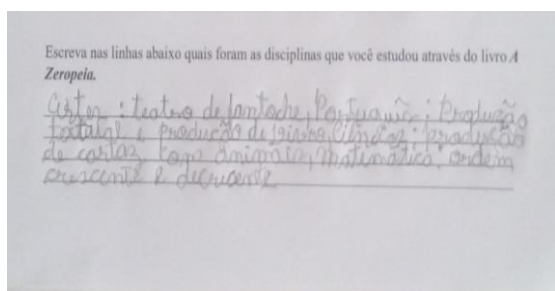 Escreva nas linhas abaixo quais foram as disciplinas que você estudou através do livro A
Zeropeia.
Artes: teatro de fantoche, Português: Produção
textual e produção de, Ciências: produção
de cartaz com animais, matemática: ordem
crescente e decrescente